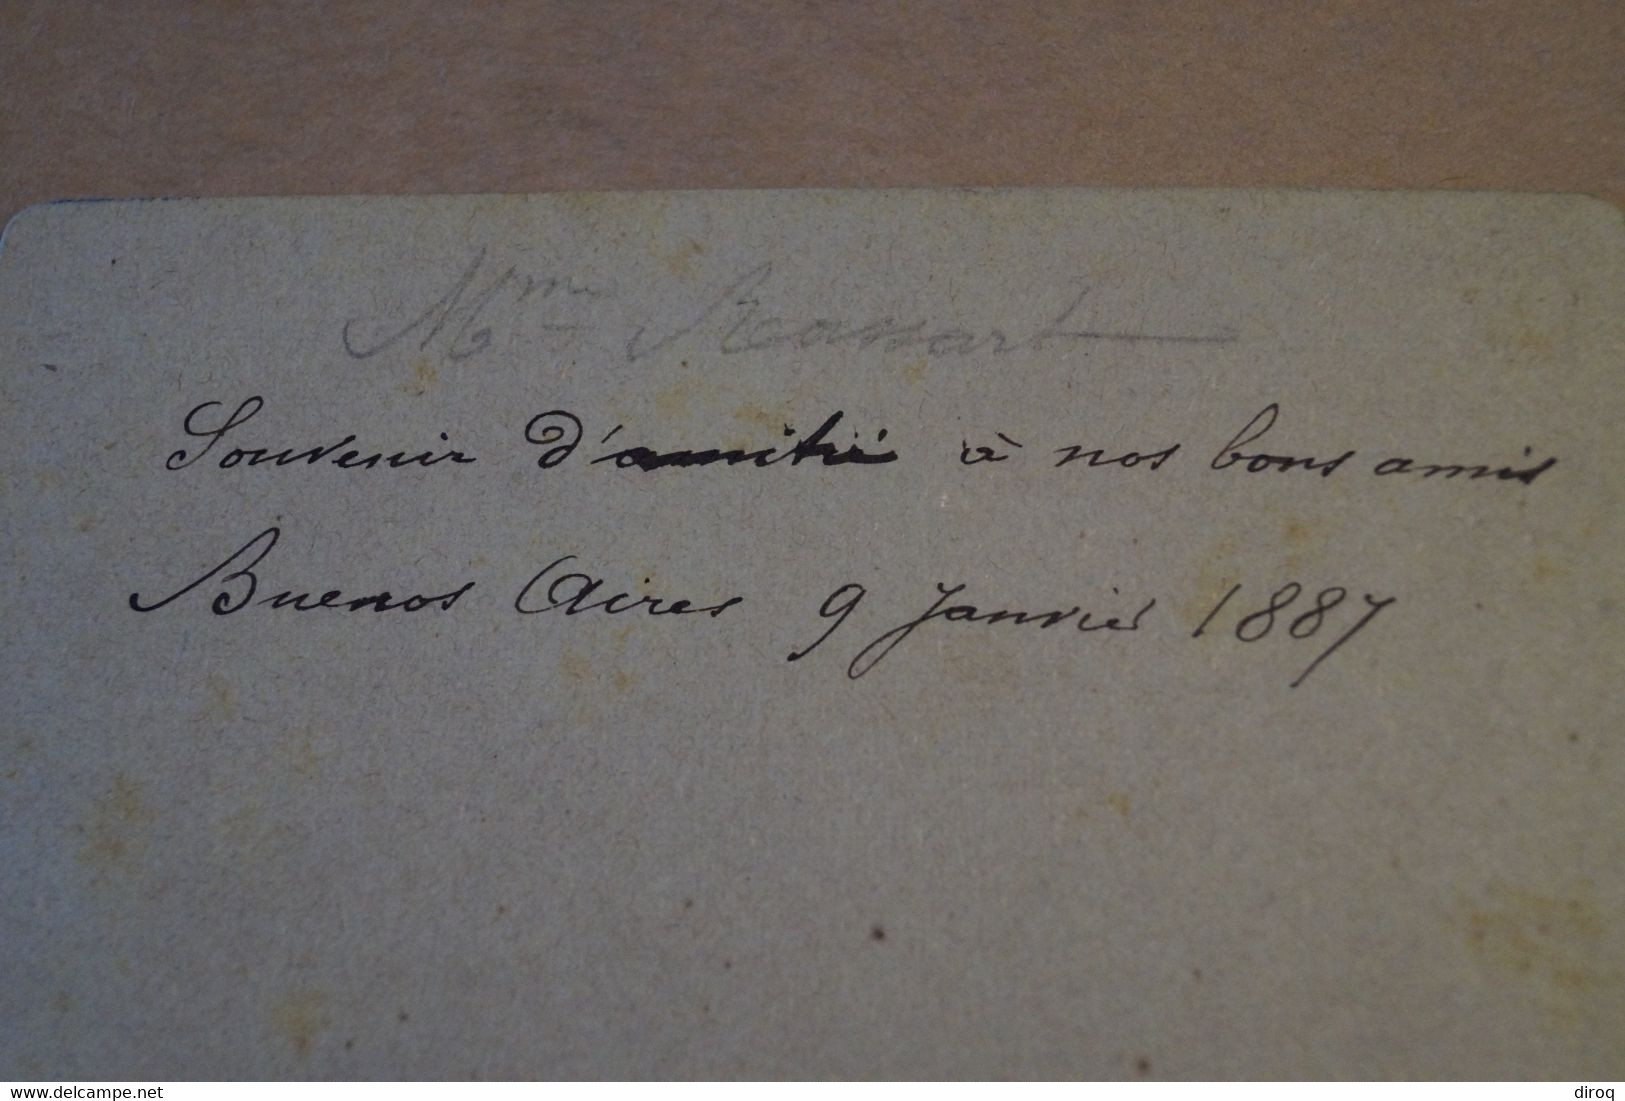 Mme
Souvenir d'amitié à nos bons amis
Buenos Aires 9 Janvier 1887
delcampe.net
diroq